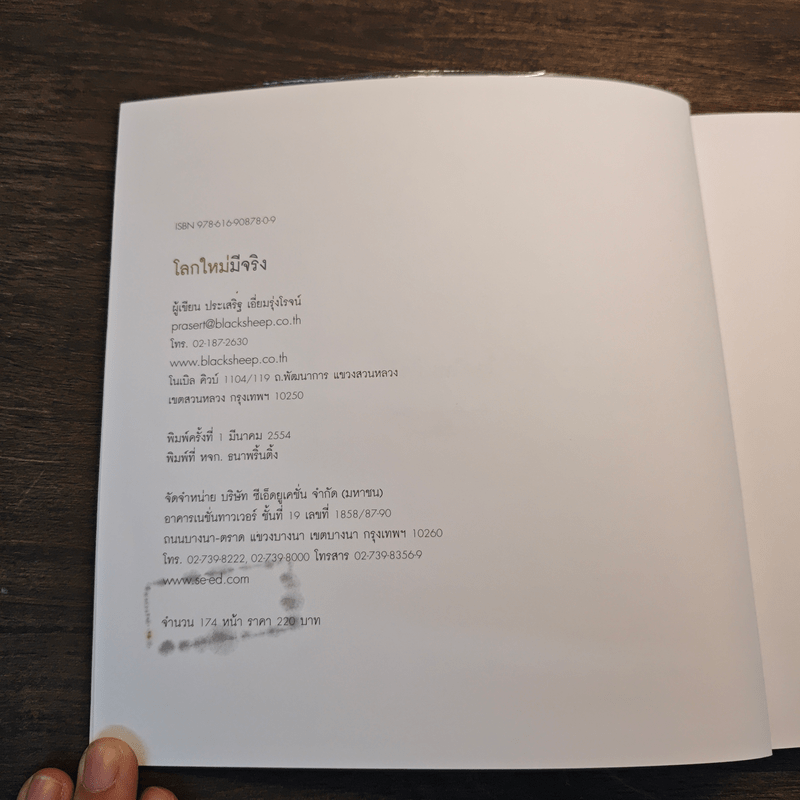 ISBN 978-616-90878-0-9
โลกใหม่มีจริง
ผู้เขียน ประเสริฐ เอี่ยมรุ่งโรจน์
prasert@blacksheep.co.th
โทร. 02-187-2630
www.blacksheep.co.th
โนเบิล คิวบ์ 1104/119 ถ.พัฒนาการ แขวงสวนหลวง
เขตสวนหลวง กรุงเทพฯ 10250
พิมพ์ครั้งที่ 1 มีนาคม 2554
พิมพ์ที่ หจก. ธนาพริ้นติ้ง
จัดจำหน่าย บริษัท ซีเอ็ดยูเคชั่น จำกัด (มหาชน)
อาคารเนชั่นทาวเวอร์ ชั้นที่ 19 เลขที่ 1858/87-90
ถนนบางนา-ตราด แขวงบางนา เขตบางนา กรุงเทพฯ 10260
โทร. 02-739-8222, 02-739-8000 โทรสาร 02-739-8356-9
www.se-ed.com
จำนวน 174 หน้า ราคา 220 บาท